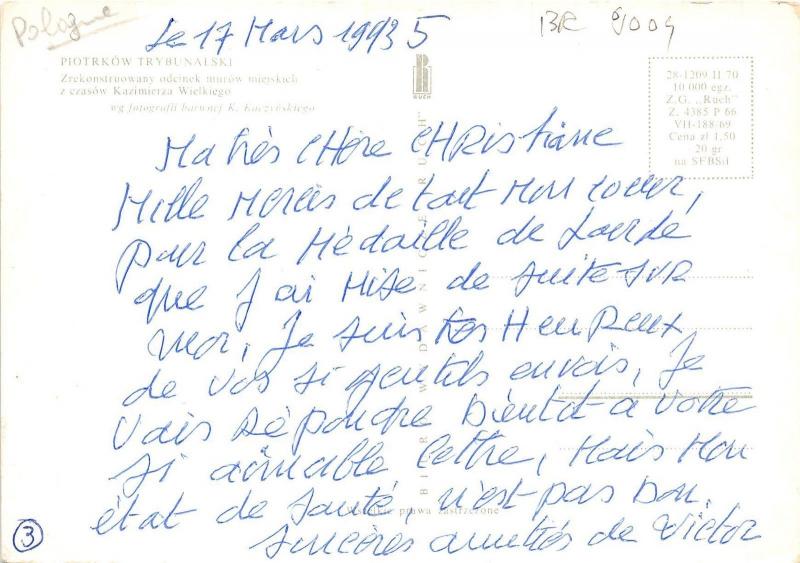 Pologne
Le 17 Mars 1993 5
BR 9009
PIOTRKÓW TRYBUNALSKI
Zrekonstruowany odcinek murów miejskich
z czasów Kazimierza Wielkiego
wg fotografii barwnej K. Kaczyńskiego
RUCH
28-1209.II 70
10 000 egz.
Z.G. „Ruch"
Z. 4385 P 66
VII-188/69
Cena zł 1,50
20 gr
na SFBSiI
Ma très CHère CHRistiane
Mille Mercis de tout Mon coeur,
pour la Médaille de Lourde
que J'ai Mise de suite SUR
moi, Je suis très HeuReux
de vos si gentils envois, Je
Vais Répondre Bientot a Votre
si aimable lettre, Mais Mon
état de santé, n'est pas bon.
Wszelkie prawa zastrzeżone
3
sincères amitiés de Victor